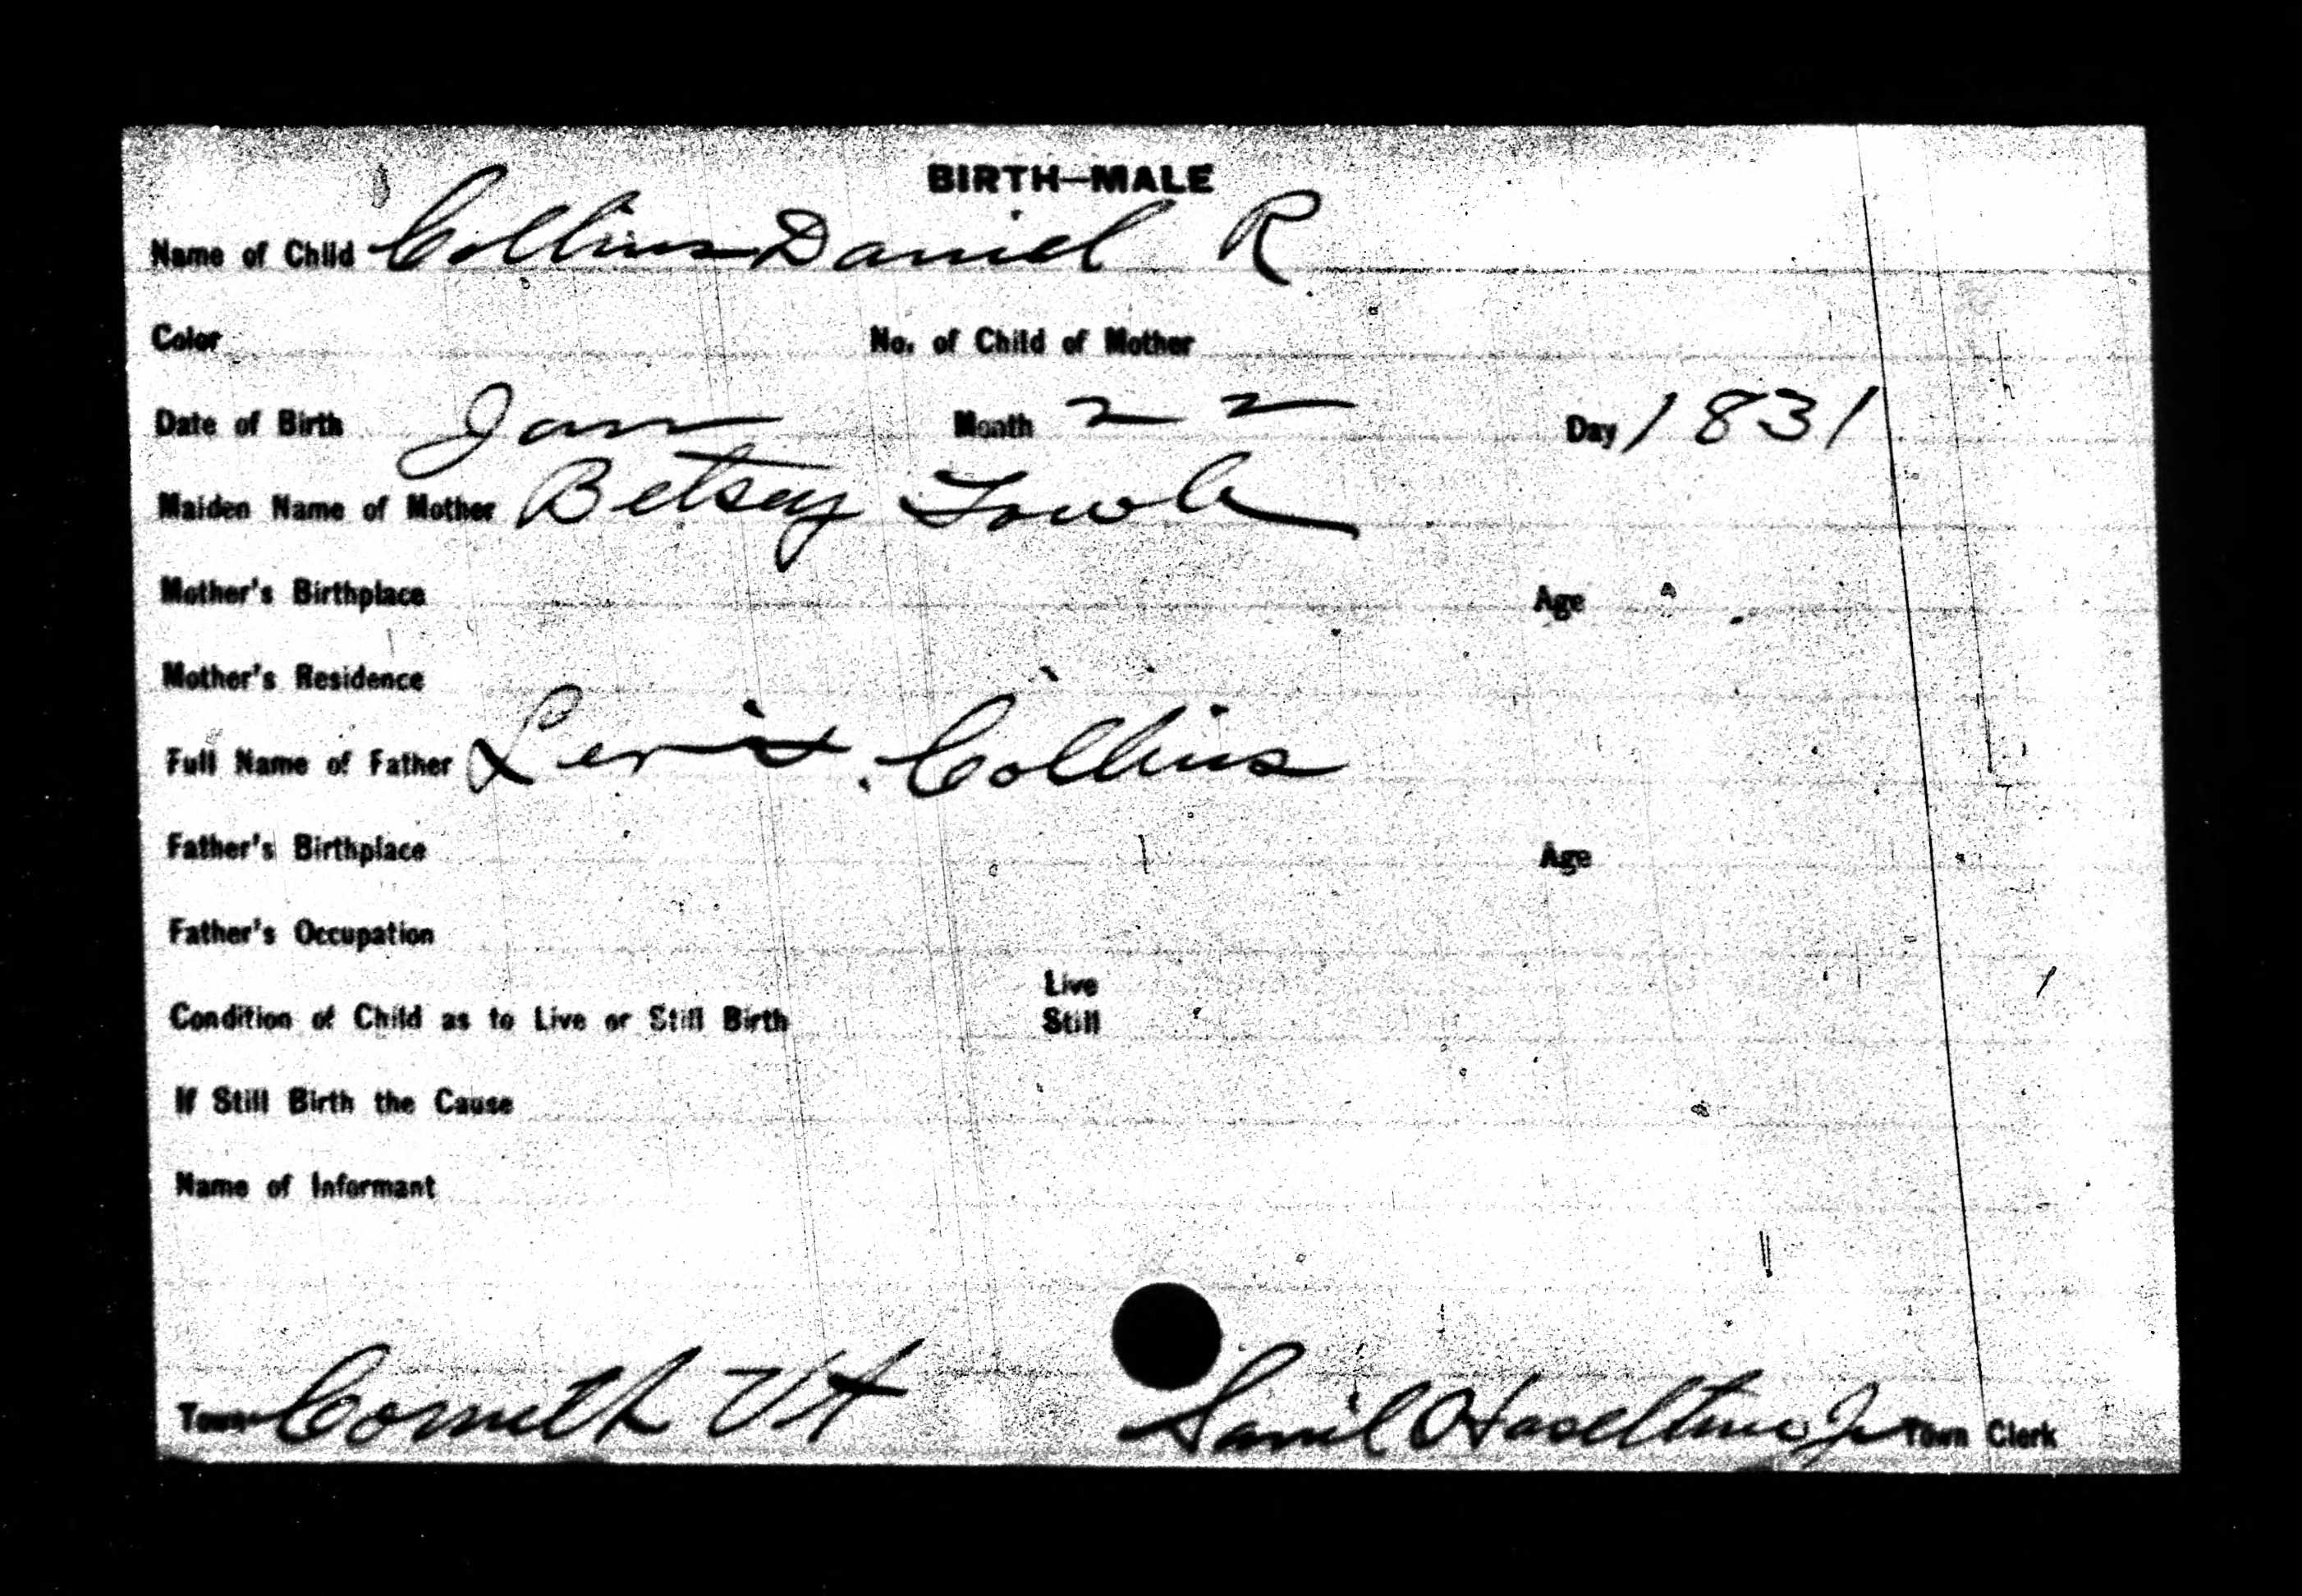 BIRTH—MALE
Name of Child Collins Daniel R
Color No. of Child of Mother
Date of Birth Jan Month 22 Day 1831
Maiden Name of Mother Betsey Towle
Mother's Birthplace Age
Mother's Residence
Full Name of Father Levi Collins
Father's Birthplace Age
Father's Occupation
Live
Condition of Child as to Live or Still Birth Still
If Still Birth the Cause
Name of Informant
Town Corinth Vt Haseltine Jr Town Clerk